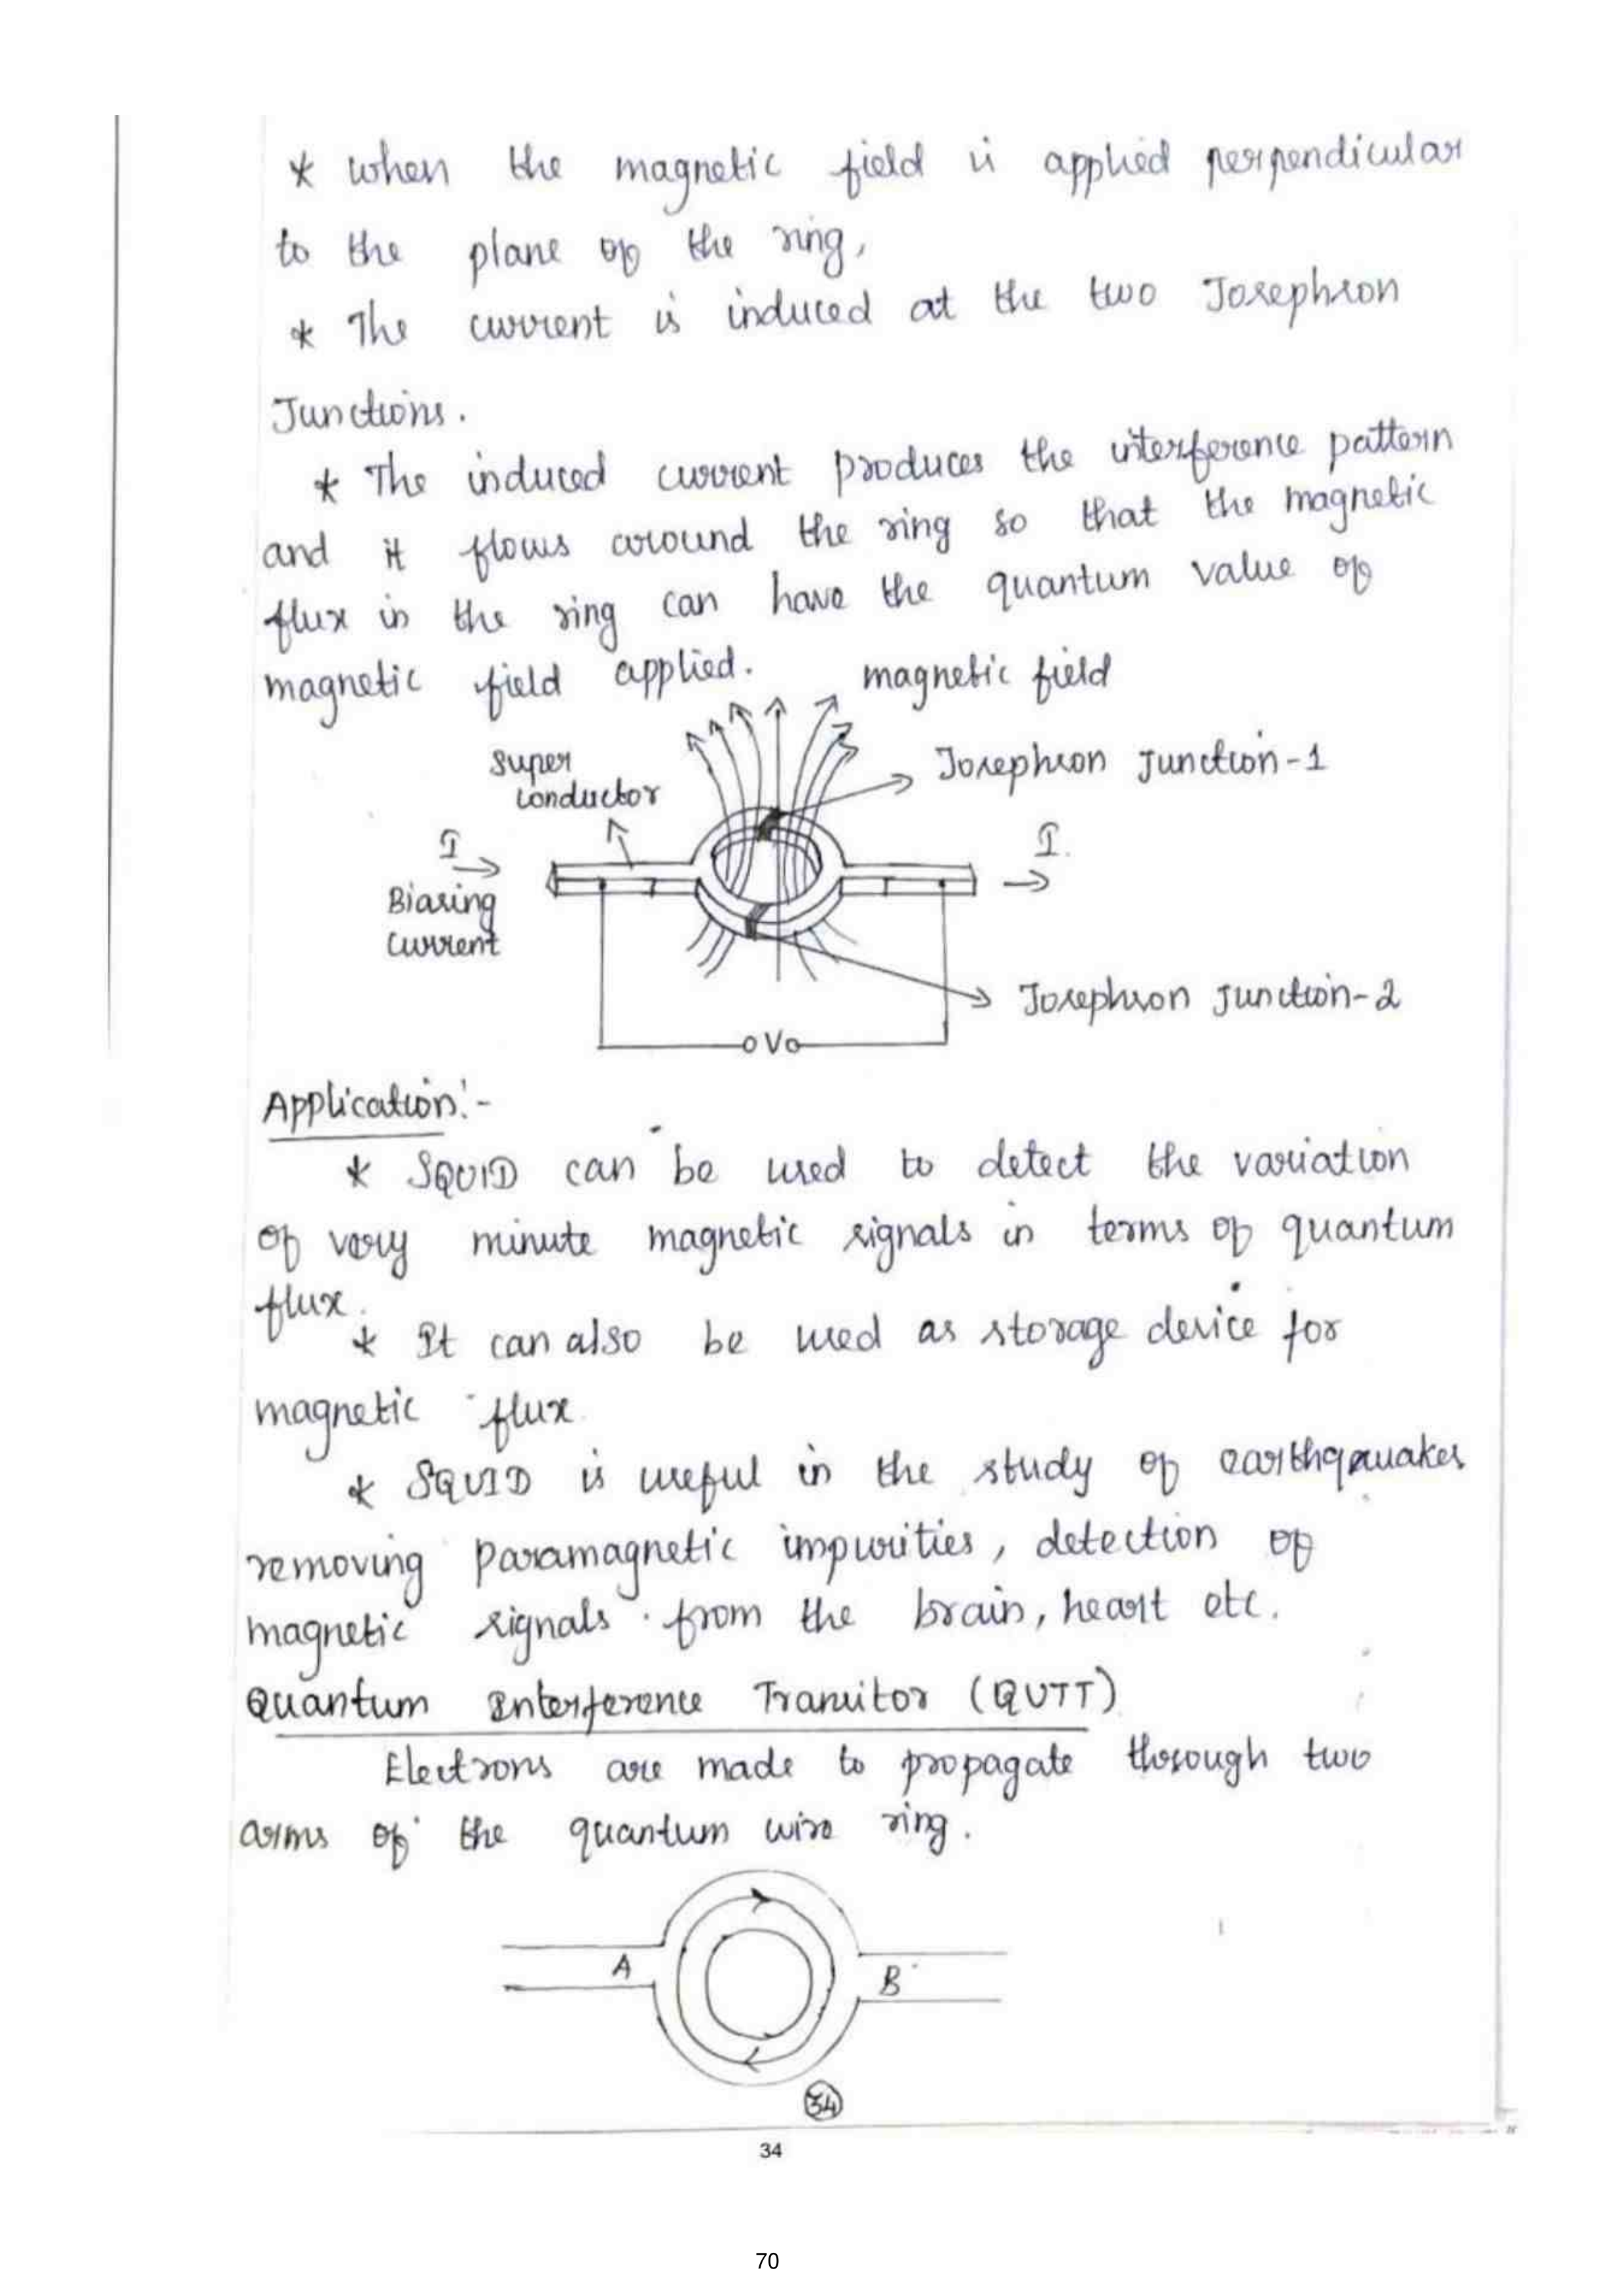 * When the magnetic field is applied perpendicular
to the plane of the ring,
* The current is induced at the two Josephson
Junctions.
* The induced current produces the interference pattern
and it flows around the ring so that the magnetic
flux in the ring can have the quantum value of
magnetic field applied.
magnetic field
Super
conductor
Josephson Junction-1
I
I.
Biasing
Current
Josephson Junction-2
V
Application:-
* SQUID can be used to detect the variation
of very minute magnetic signals in terms of quantum
flux.
* It can also be used as storage device for
magnetic flux.
* SQUID is useful in the study of earthqauakes
removing paramagnetic impurities, detection of
magnetic signals from the brain, heart etc.
Quantum Interference Transitor (QUTT)
Electrons are made to propagate through two
arms of the quantum wire ring.
A
B
34
34
70